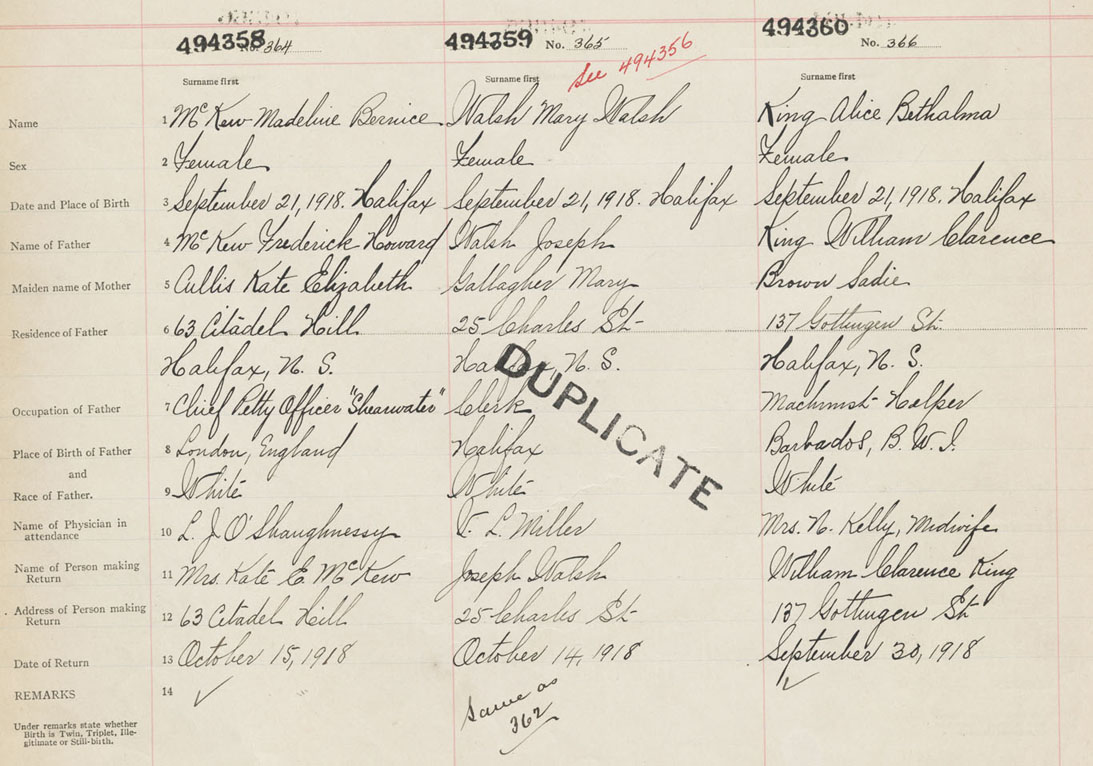 494358 No. 364 494359 No. 365 494360 No. 366
See 494356
Surname first Surname first Surname first
Name 1 McKew Madeline Bernice Walsh Mary Walsh King Alice Bethalma
Sex 2 Female Female Female
Date and Place of Birth 3 September 21, 1918. Halifax September 21, 1918. Halifax September 21, 1918. Halifax
Name of Father 4 McKew Frederick Howard Walsh Joseph King William Clarence
Maiden name of Mother 5 Cullis Kate Elizabeth Gallagher Mary Brown Sadie
Residence of Father 6 63 Citadel Hill 25 Charles St 137 Gottingen St.
Halifax, N. S. Halifax, N. S. Halifax, N. S.
DUPLICATE
Occupation of Father 7 Chief Petty Officer "Shearwater" Clerk Machinist Helper
Place of Birth of Father 8 London, England Halifax Barbados, B. W. I.
and
Race of Father. 9 White White White
Name of Physician in
attendance 10 L. J. O'Shaughnessy L. Miller Mrs. N. Kelly, Midwife
Name of Person making
Return 11 Mrs. Kate E. McKew Joseph Walsh William Clarence King
Address of Person making
Return 12 63 Citadel Hill 25 Charles St 137 Gottingen St
Date of Return 13 October 15, 1918 October 14, 1918 September 30, 1918
REMARKS 14 ✓ Same as ✓
362
Under remarks state whether
Birth is Twin, Triplet, Ille-
gitimate or Still-birth.